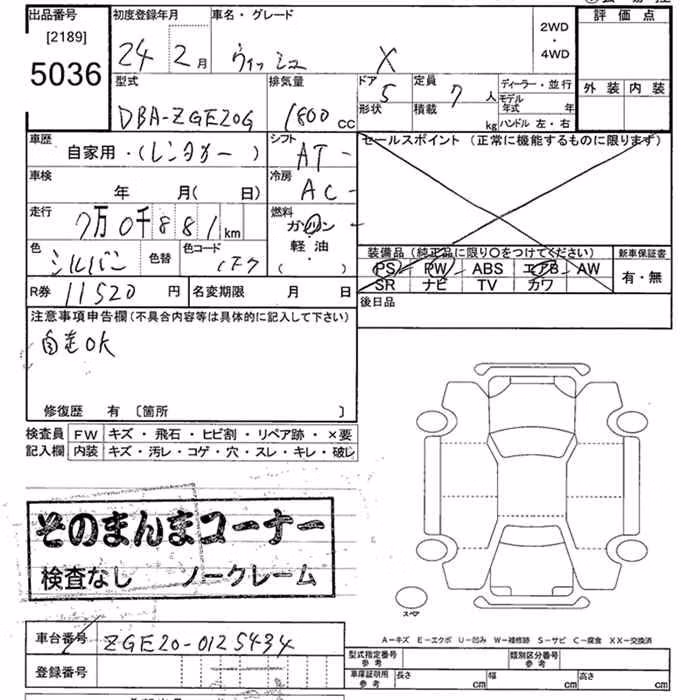 出品番号 初度登録年月 車名・グレード 評価点
[2189]
5036 24 2月 ウィッシュ X 2WD・4WD
外装 内装
型式 排気量 ドア 定員 ディーラー・並行
DBA-ZGE20G 1800cc 5 7人 モデル年式 年
形状 積載 kg ハンドル 左・右
車歴 シフト セールスポイント (正常に機能するものに限ります)
自家用・(レンタカー) AT
車検 冷房
年 月( 日) AC
走行 燃料
7万0千881km ガソリン
軽・油
( ・ )
色 色替 色コード
シルバー 1F7
装備品 (純正品に限り〇をつけてください) 新車保証書
PS PW ABS エアB AW 有・無
SR ナビ TV カワ
R券 11520円 名変期限 月 日
後日品
注意事項申告欄(不具合内容等は具体的に記入して下さい)
自走OK
修復歴 有 〔箇所 〕
検査員 FW キズ・飛石・ヒビ割・リペア跡・×要
記入欄 内装 キズ・汚レ・コゲ・穴・スレ・キレ・破レ
そのまんまコーナー
検査なし ノークレーム
スペア
A-キズ E-エクボ U-凹み W-補修跡 S-サビ C-腐食 XX-交換済
車台番号 ZGE20-0125434
型式指定番号参考 類別区分番号参考
登録番号
車庫証明用参考 長さ cm 幅 cm 高さ cm